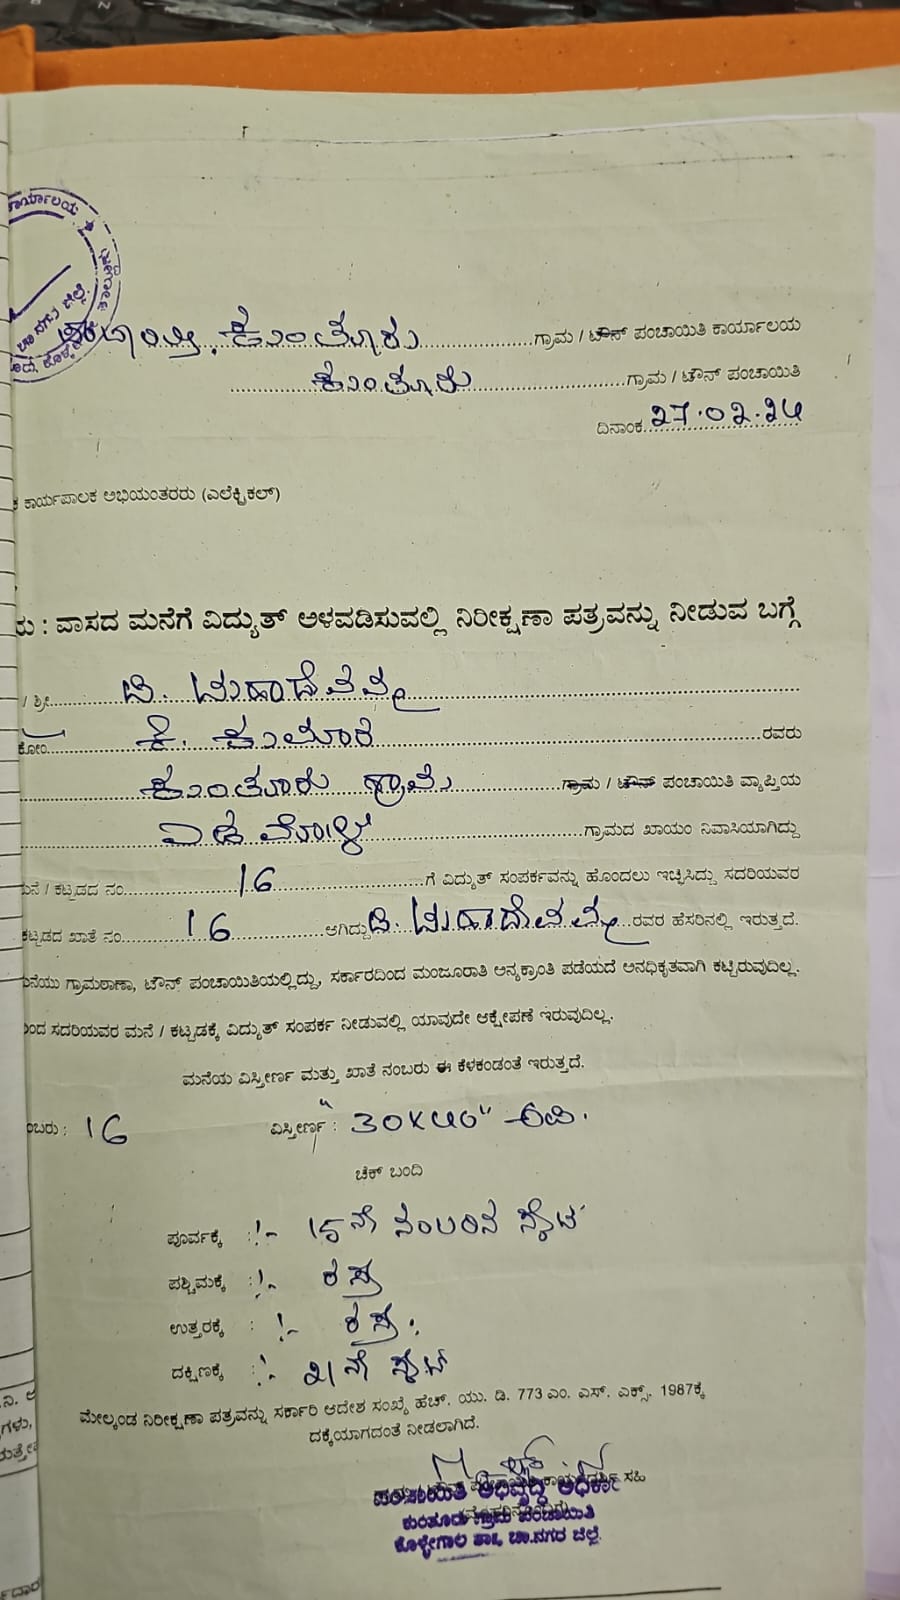 ಕಾರ್ಯಾಲಯ
ಕುಂತೂರು ಗ್ರಾಮ / ಟೌನ್ ಪಂಚಾಯಿತಿ ಕಾರ್ಯಾಲಯ
ಕುಂತೂರು ಗ್ರಾಮ / ಟೌನ್ ಪಂಚಾಯಿತಿ
ದಿನಾಂಕ 27.02.24
ಕಾರ್ಯಪಾಲಕ ಅಭಿಯಂತರರು (ಎಲೆಕ್ಟ್ರಿಕಲ್)
: ವಾಸದ ಮನೆಗೆ ವಿದ್ಯುತ್ ಅಳವಡಿಸುವಲ್ಲಿ ನಿರೀಕ್ಷಣಾ ಪತ್ರವನ್ನು ನೀಡುವ ಬಗ್ಗೆ
/ ಶ್ರೀ ಟಿ. ಮಹಾದೇವಮ್ಮ
ಕೋಂ ಕೆ. ಕುಮಾರ ರವರು
ಕುಂತೂರು ಗ್ರಾಮ ಗ್ರಾಮ / ಟೌನ್ ಪಂಚಾಯಿತಿ ವ್ಯಾಪ್ತಿಯ
ಗ್ರಾಮದ ಖಾಯಂ ನಿವಾಸಿಯಾಗಿದ್ದು
ಮನೆ / ಕಟ್ಟಡದ ನಂ. 16 ಗೆ ವಿದ್ಯುತ್ ಸಂಪರ್ಕವನ್ನು ಹೊಂದಲು ಇಚ್ಛಿಸಿದ್ದು ಸದರಿಯವರ
ಕಟ್ಟಡದ ಖಾತೆ ನಂ. 16 ಆಗಿದ್ದು ಟಿ. ಮಹಾದೇವಮ್ಮ ರವರ ಹೆಸರಿನಲ್ಲಿ ಇರುತ್ತದೆ.
ಗ್ರಾಮಠಾಣಾ, ಟೌನ್ ಪಂಚಾಯಿತಿಯಲ್ಲಿದ್ದು, ಸರ್ಕಾರದಿಂದ ಮಂಜೂರಾತಿ ಅನ್ಯಕ್ರಾಂತಿ ಪಡೆಯದೆ ಅನಧಿಕೃತವಾಗಿ ಕಟ್ಟಿರುವುದಿಲ್ಲ.
ಸದರಿಯವರ ಮನೆ / ಕಟ್ಟಡಕ್ಕೆ ವಿದ್ಯುತ್ ಸಂಪರ್ಕ ನೀಡುವಲ್ಲಿ ಯಾವುದೇ ಆಕ್ಷೇಪಣೆ ಇರುವುದಿಲ್ಲ.
ಮನೆಯ ವಿಸ್ತೀರ್ಣ ಮತ್ತು ಖಾತೆ ನಂಬರು ಈ ಕೆಳಕಂಡಂತೆ ಇರುತ್ತದೆ.
ಂಬರು : 16 ವಿಸ್ತೀರ್ಣ : "30X40" ಅಡಿ.
ಚೆಕ್ ಬಂದಿ
ಪೂರ್ವಕ್ಕೆ :- 15ನೇ ನಂಬರಿನ ಸೈಟ್
ಪಶ್ಚಿಮಕ್ಕೆ :- ರಸ್ತೆ
ಉತ್ತರಕ್ಕೆ : :- ರಸ್ತೆ.
ದಕ್ಷಿಣಕ್ಕೆ :- 21ನೇ ಸೈಟ್
ಮೇಲ್ಕಂಡ ನಿರೀಕ್ಷಣಾ ಪತ್ರವನ್ನು ಸರ್ಕಾರಿ ಆದೇಶ ಸಂಖ್ಯೆ ಹೆಚ್. ಯು. ಡಿ. 773 ಎಂ. ಎಸ್. ಎಕ್ಸ್. 1987ಕ್ಕೆ
ದಕ್ಕೆಯಾಗದಂತೆ ನೀಡಲಾಗಿದೆ.
ಸಹಿ
ಪಂಚಾಯಿತಿ ಅಭಿವೃದ್ಧಿ ಅಧಿಕಾರಿ
ಕುಂತೂರು ಗ್ರಾಮ ಪಂಚಾಯಿತಿ
ಕೊಳ್ಳೇಗಾಲ ತಾ, ಚಾ.ನಗರ ಜಿಲ್ಲೆ.